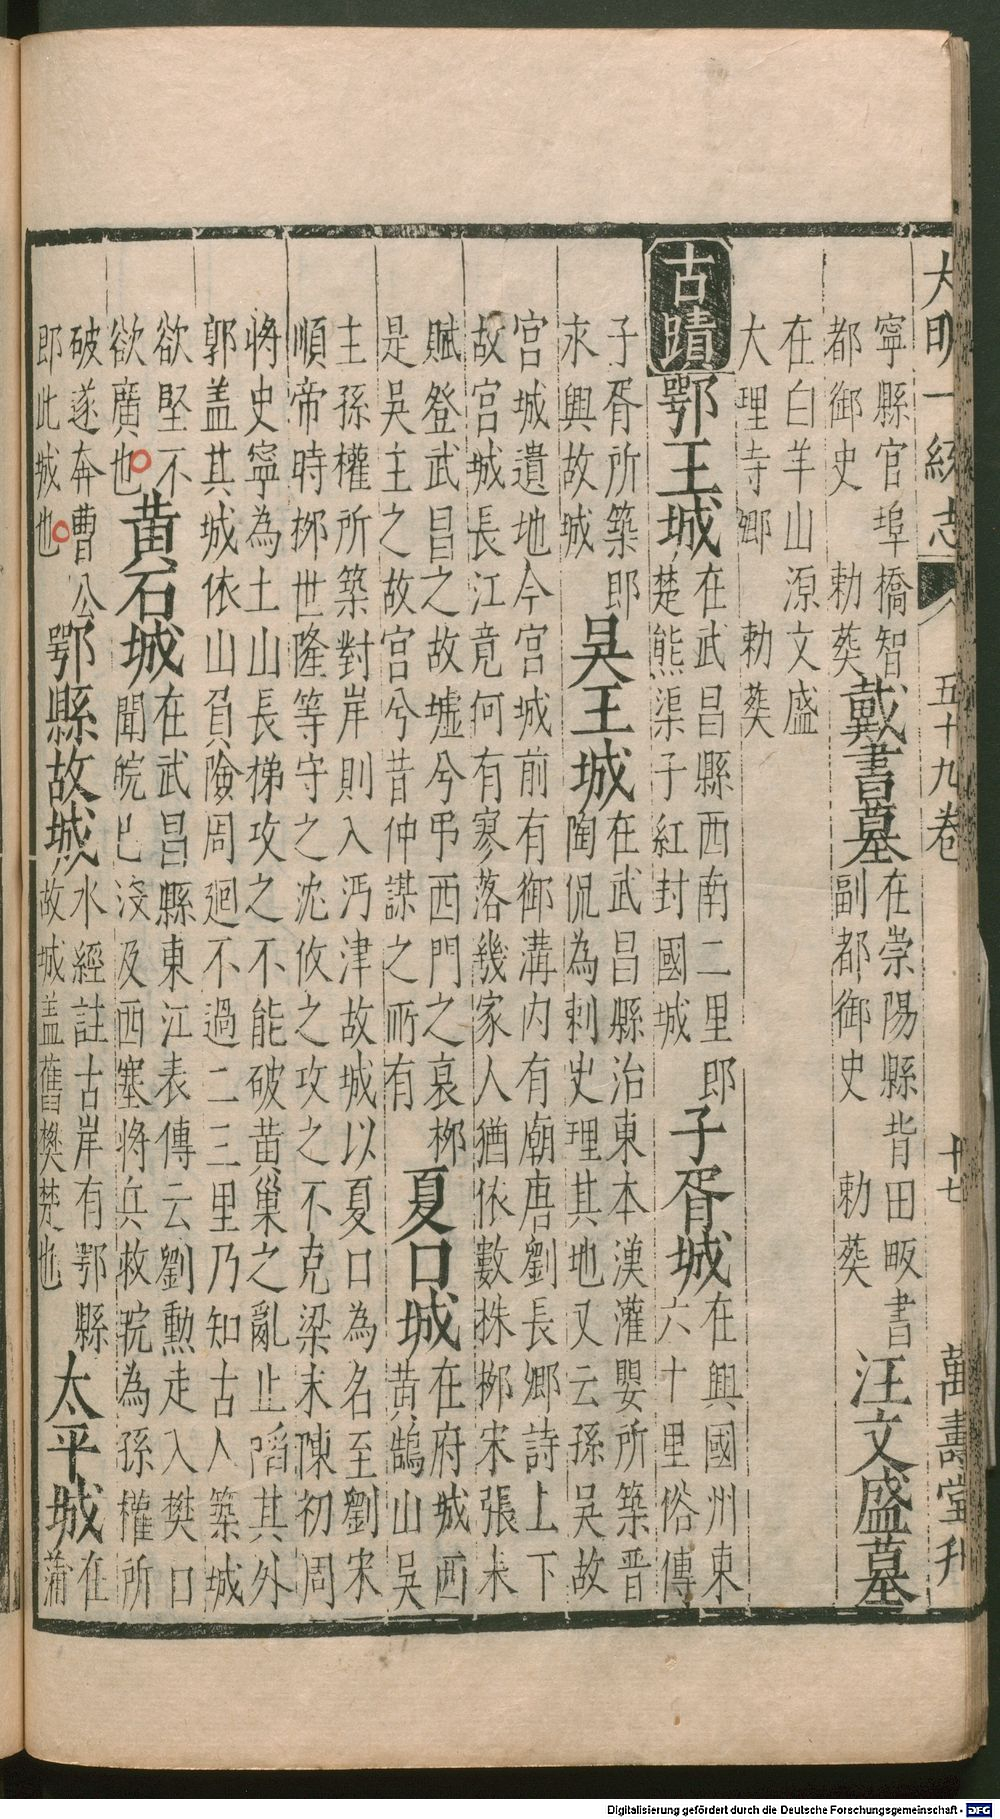 大明一統志 五十九卷 十七 萬壽堂刊
寧縣官埠橋智
都御史 勅葬
戴書墓
在崇陽縣背田畈書
副都御史 勅葬
汪文盛墓
在白羊山源文盛
大理寺鄉 勅葬
古蹟
鄂王城
在武昌縣西南二里即
楚熊渠子紅封國城
子胥城
在興國州東
六十里俗傳
子胥所築即
求興故城
吳王城
在武昌縣治東本漢灌嬰所築晋
陶侃為刺史理其地又云孫吳故
宮城遺地今宮城前有御溝內有廟唐劉長鄉詩上下
故宮城長江竟何有寥落幾家人猶依數株桞宋張耒
賦登武昌之故墟兮弔西門之哀桞
是吳主之故宮兮昔仲謀之所有
夏口城
在府城西
黃鵠山吳
主孫權所築對岸則入沔津故城以夏口為名至劉宋
順帝時桞世隆等守之沈攸之攻之不克梁末陳初周
將史寧為土山長梯攻之不能破黃巢之亂止䧟其外
郭盖其城依山負險周廻不過二三里乃知古人築城
欲堅不
欲廣也
黃石城
在武昌縣東江表傳云劉勲走入樊口
聞皖已沒及西塞將兵救皖為孫權所
破遂奔曹公
即此城也
鄂縣故城
水經註古岸有鄂縣
故城盖舊樊楚也
太平城
在
蒲
Digitalisierung gefördert durch die Deutsche Forschungsgemeinschaft - DFG